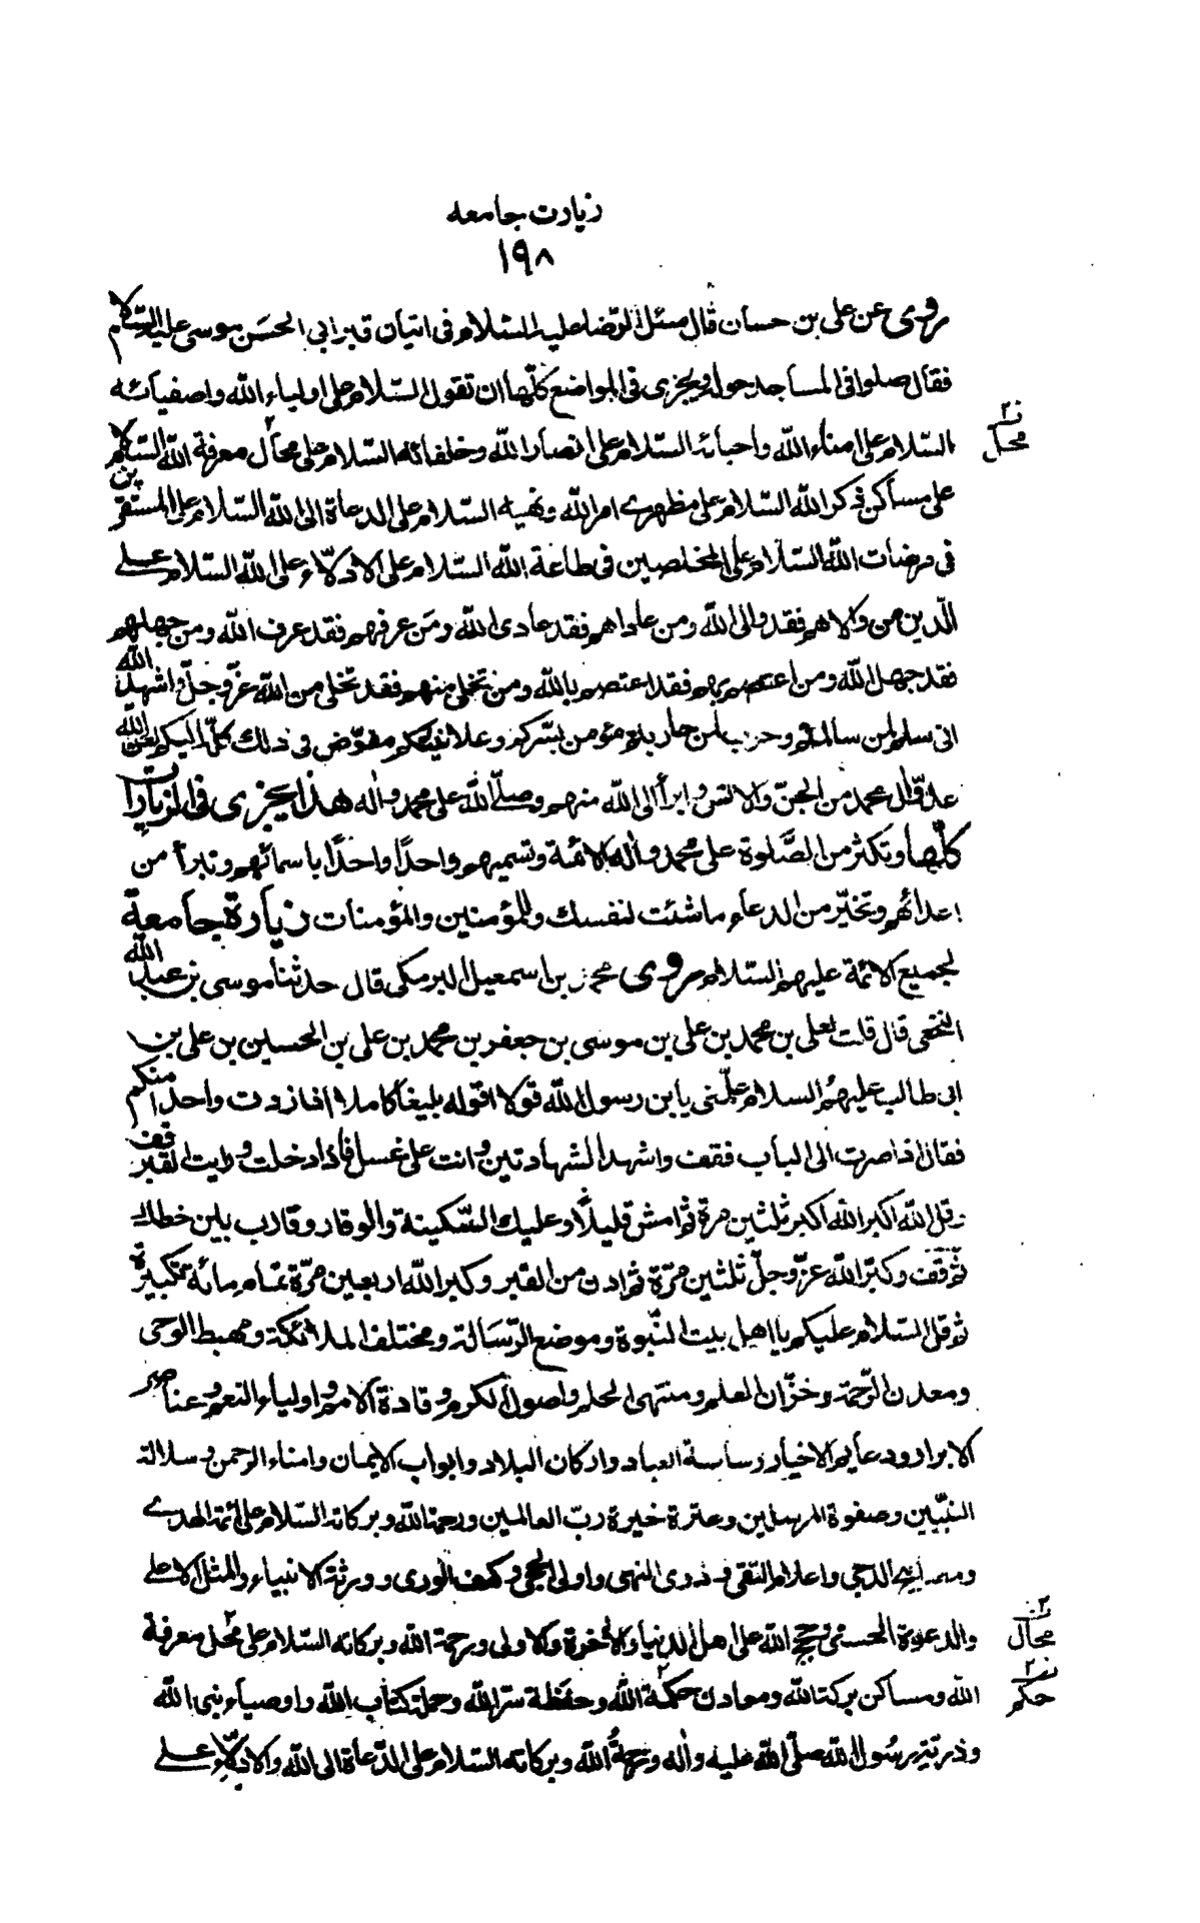 زيارت جامعه
١٩٨
روى عن على بن حسان قال سئل الرّضا عليه السّلام فى اتيان قبر ابى الحسَن موسى عليه السّلام
فقال صلوا فى المساجد حوله ويجزى فى المواضع كلّها ان تقول السّلام على اولياء الله واصفيائه
السّلام على امناء الله واحبائه السّلام على انصار الله وخلفائه السّلام على محالّ معرفة الله السّلام
محلّ
على مساكن ذكر الله السّلام على مظهرى امر الله ونهيه السّلام على الدعاة الى الله السّلام على المستقرين
فى مرضات الله السّلام على المخلصين فى طاعة الله السّلام على الادلّاء على الله السّلام على
الّذين من والاهم فقد والى الله ومن عاداهم فقد عادى الله ومَن عرفهم فقد عرف الله ومن جهلهم
فقد جهل الله ومن اعتصم بهم فقد اعتصم بالله ومن تخلى منهم فقد تخلى من الله عزّ وجلّ واشهد الله
انى سلم لمن سالمتم وحرب لمن حاربتم مؤمن بسّركم وعلانيتكم مفوّض فى ذلك كلّه اليكم لعن الله
عدوّ ال محمد من الجنّ والانس وابرأ الى الله منهم وصلّى الله على محمد واله هذا يجزى فى الزيارات
كلّها وتكثر من الصَّلوة على محمد واله الائمة وتسميهم واحدًا واحدًا باسمائهم وتبرأ من
اعدائهم وتخيّر من الدعاء ما شئت لنفسك وللمؤمنين والمؤمنات زيارة جامعة
لجميع الائمة عليهم السّلام روى محمد بن اسمعيل البرمكى قال حدثنا موسى بن عبد الله
النخعى قال قلت لعلى بن محمد بن على بن موسى بن جعفر بن محمد بن على بن الحسين بن على بن
ابى طالب عليهم السلام علّمنى يا بن رسول الله قولا اقوله بليغا كاملا اذا زرت واحدا منكم
فقال اذا صرت الى الباب فقف واشهد الشهادتين وانت على غسل فاذا دخلت ورايت القبر فقف
وقل الله اكبر الله اكبر ثلثين مرة ثم امش قليلًا وعليك السّكينة والوقار وقارب بين خطاك
ثم قف وكبّر الله عزّ وجلّ ثلثين مرّة ثم ادن من القبر وكبر الله اربعين مرّة تمام مائة تكبيرة
ثم قل السّلام عليكم يا اهل بيت النّبوة وموضع الرّسالة ومختلف الملائكة ومهبط الوحى
ومعدن الرّحمة وخزّان العلم ومنتهى الحلم واصول الكرم وقادة الامم واولياء النعم وعناصر
الابرار ودعايم الاخيار وساسة العباد واركان البلاد وابواب الايمان وامناء الرحمن وسلالة
النبّيّين وصفوة المرسلين وعترة خيرة ربّ العالمين ورحمة الله وبركاته السّلام على ائمة الهدى
ومصابيح الدجى واعلام التقى وذوى النهى واولى الحجى وكهف الورى وورثة الانبياء والمثل الاعلى
والدعوة الحسنى وحجج الله على اهل الدنيا والاخرة والاولى ورحمة الله وبركاته السّلام على محلّ معرفة
محالّ
الله ومساكن بركة الله ومعادن حكمة الله وحفظة سرّ الله وحملة كتاب الله واوصياء نبى الله
حكم
وذريّة رسُول الله صلّى الله عليه واله ورحمة الله وبركاته السّلام على الدّعاة الى الله والادلّاء على